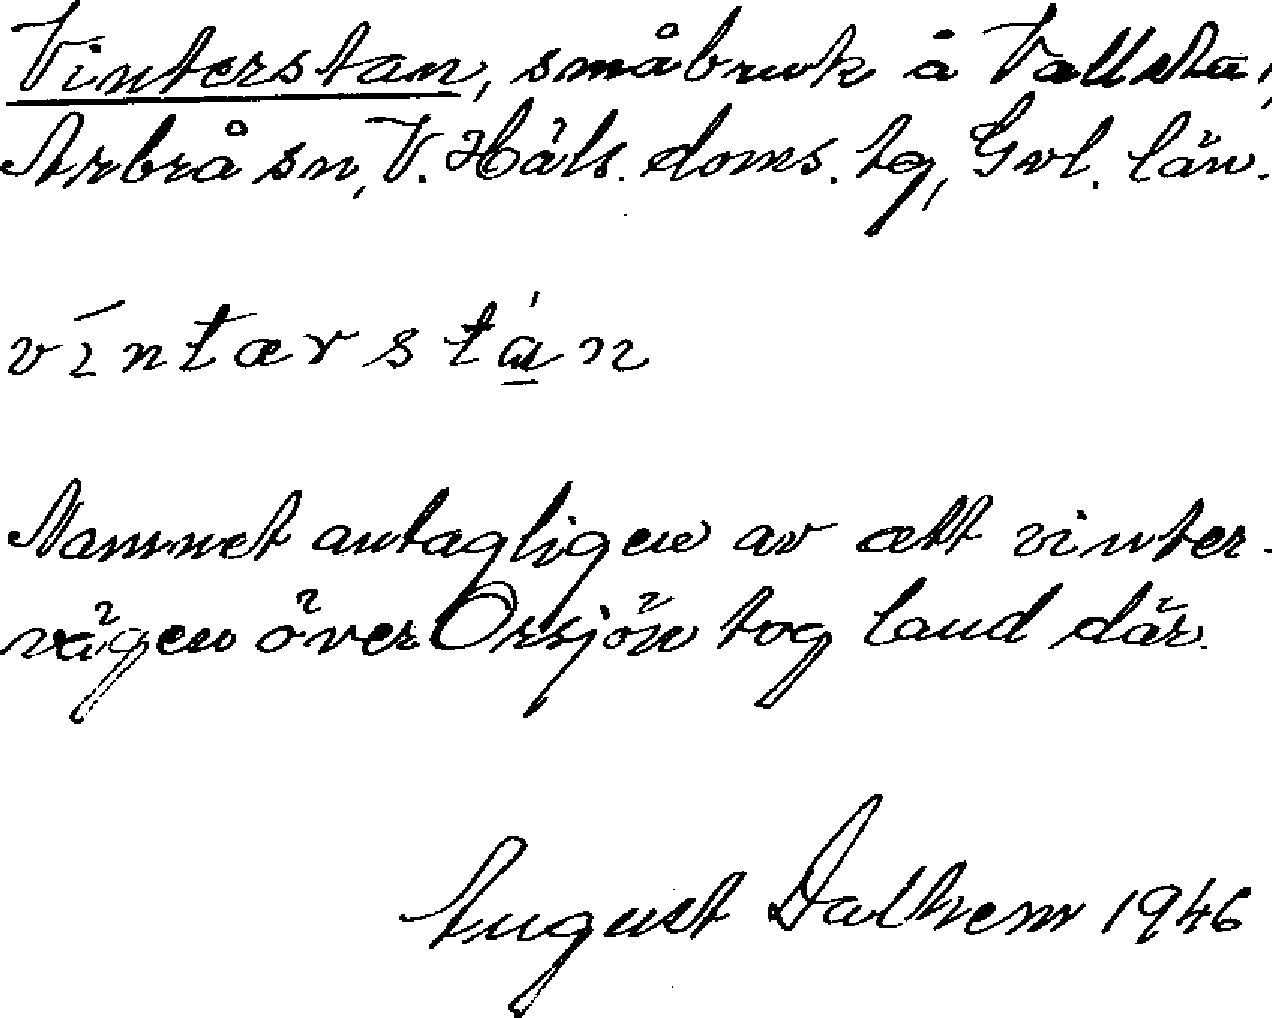 Vinterstan, småbruk å Vallsta,
Arbrå sn, V. Häls. doms. tg, Gvl. län.
víntærstá̱n
Namnet antagligen av att vinter-
vägen över Orsjön tog land där.
August Dalhem 1946